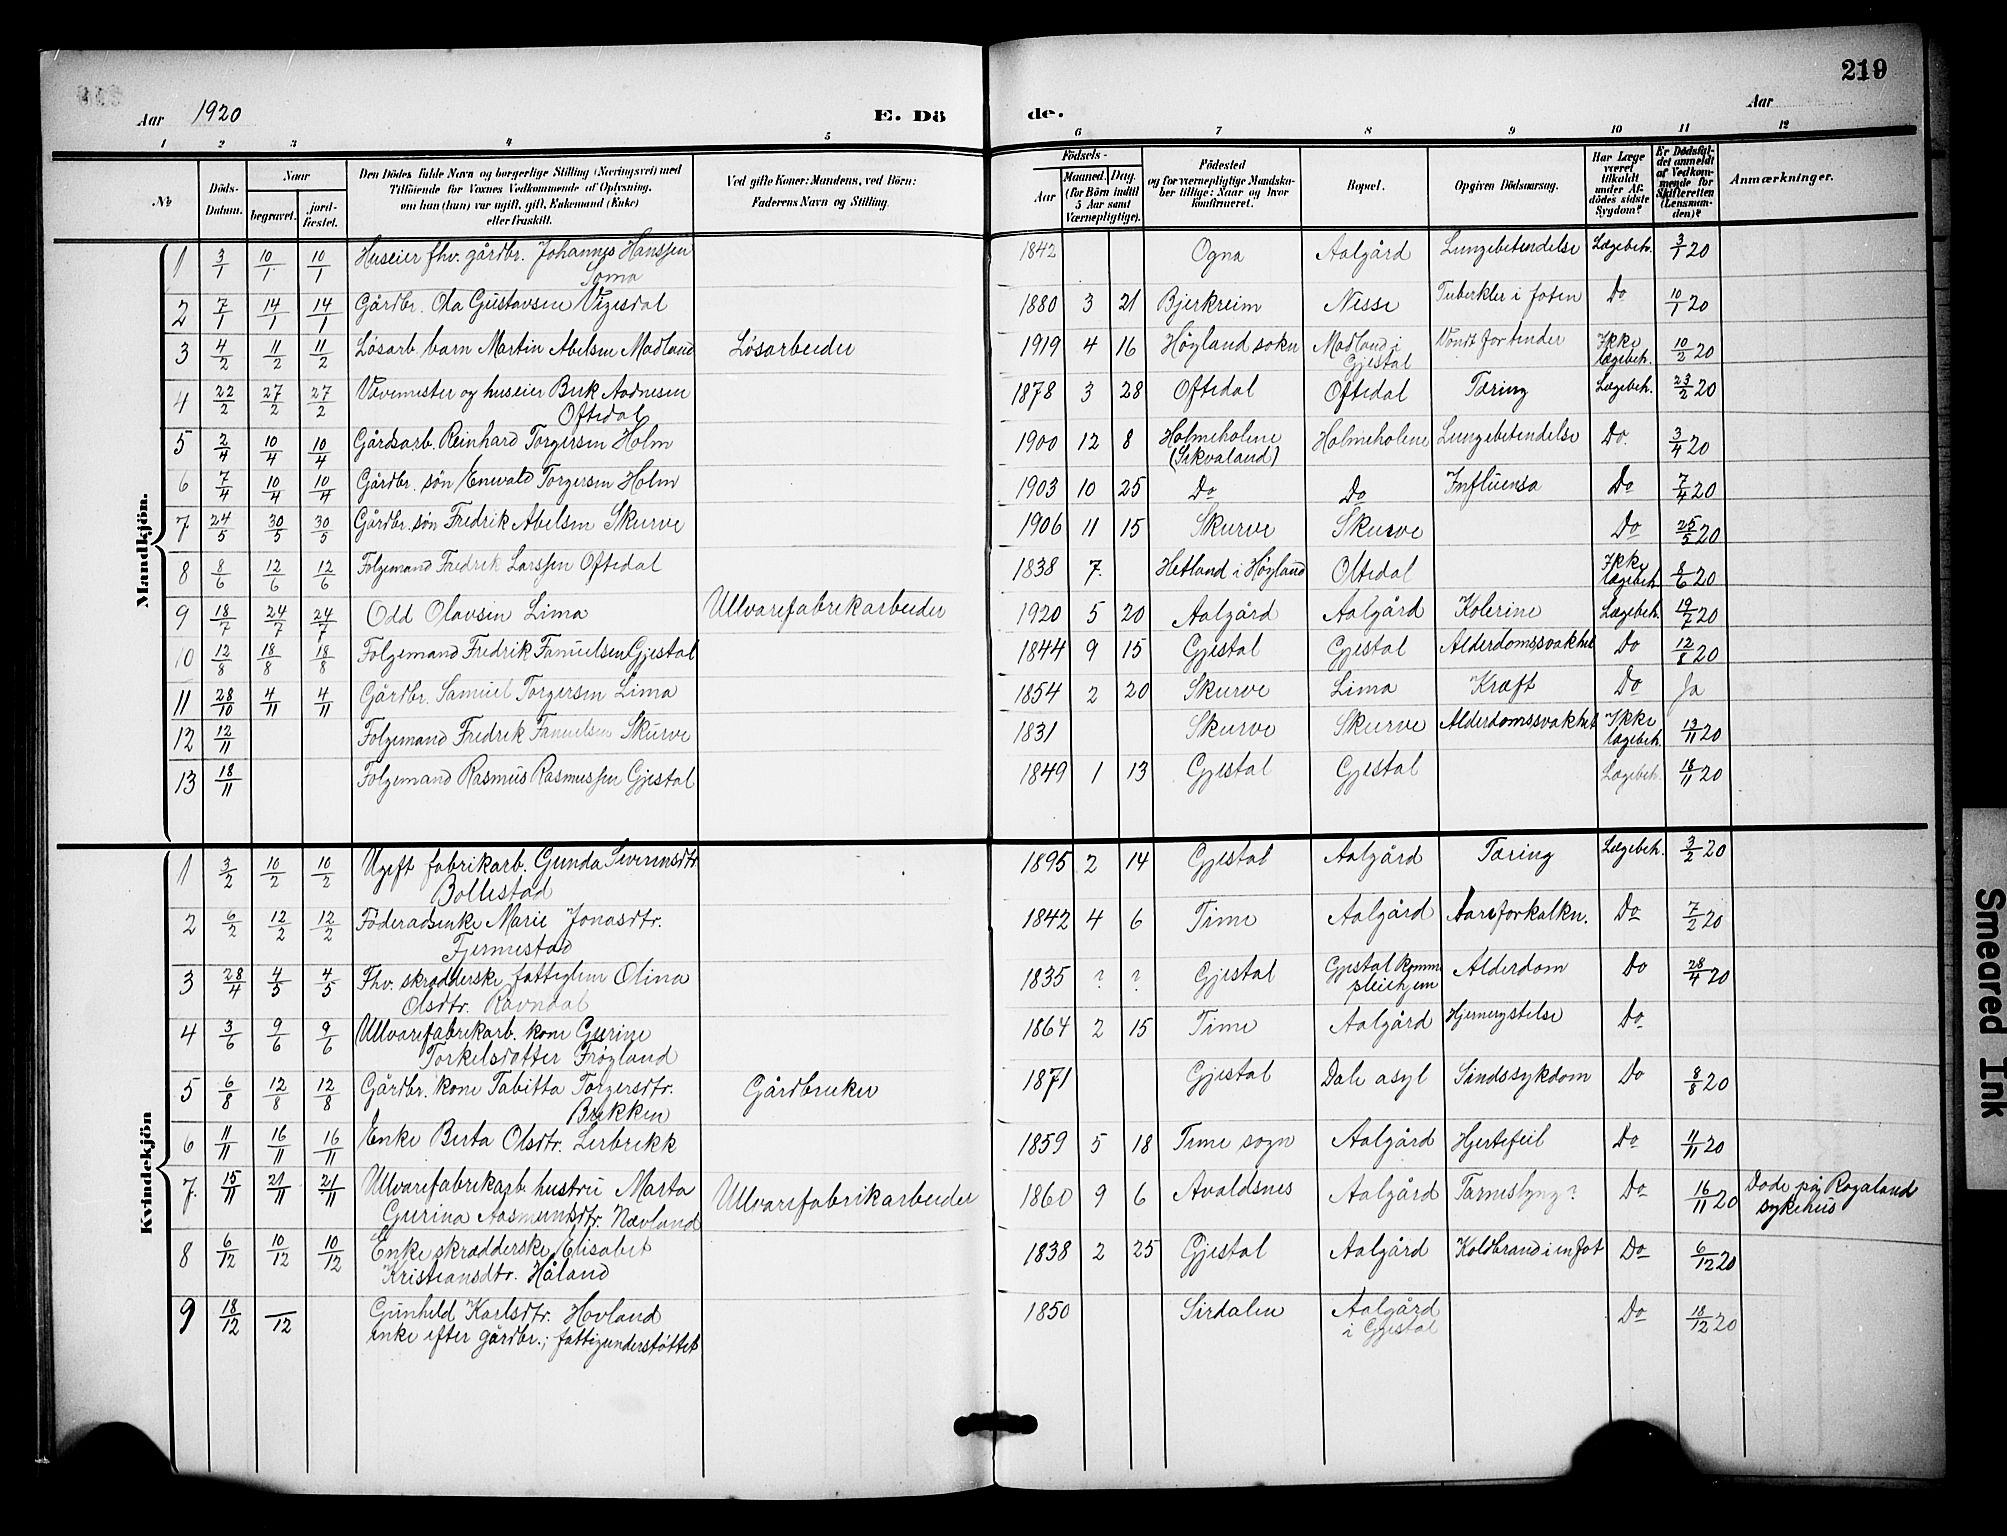 219
Aar 1920
E. Dö
de.
Aar
1 2 3 4 5 6 7 8 9 10 11 12
№
Döds-Datum.
Naar
begravet.
jord-fæstet.
Den Dödes fulde Navn og borgerlige Stilling (Næringsvei) med
Tilföiende for Voxnes Vedkommende af Oplysning,
om han (hun) var ugift, gift, Enkemand (Enke)
eller fraskilt.
Ved gifte Koner: Mandens, ved Börn:
Faderens Navn og Stilling.
Födsels-
Aar
Maaned. Dag.
(for Börn indtil
5 Aar samt
Værnepligtige).
Födested
og for værnepligtige Mandska-
ber tillige: Naar og hvor
konfirmeret.
Bopæl.
Opgiven Dödsaarsag.
Har Læge
været
tilkaldt
under Af-
dödes sidste
Sygdom?
Er Dödsfal-
det anmeldt
af Vedkom-
mende for
Skifteretten
(Lensman-
den)?
Anmærkninger.
Mandkjön.
1 3/1 10/1 10/1 Huseier fhv. gårdbr. Johannes Hanssen 1842 Ogna Aalgård Lungebetendelse Lægebeh. 3/1 20
Soma
2 7/1 14/1 14/1 Gårdbr. Ola Gustavsen Vigesdal 1880 3 21 Bjerkreim Nesse Tuberkler i foten Do 10/1 20
3 4/2 11/2 11/2 Løsarb. barn Martin Abelsen Madland Løsarbeider 1919 4 16 Høyland sokn Madland i Vondt for tender Ikke 10/2 20
Gjestal lægebeh.
4 22/2 27/2 27/2 Vævemester og huseier Berk Aadnesen 1878 3 28 Oftedal Oftedal Tæring Lægebeh. 23/2 20
Oftedal
5 2/4 10/4 10/4 Gårdsarb. Reinhard Torgersen Holm 1900 12 8 Holmeholene Holmeholene Lungebetendelse Do. 3/4 20
(Sikvaland)
6 7/4 10/4 10/4 Gårdbr. søn Enevald Torgersen Holm 1903 10 25 Do Do Influensa Do 7/4 20
7 24/5 30/5 30/5 Gårdbr. søn Fredrik Abelsen Skurve 1906 11 15 Skurve Skurve Do 25/5 20
8 8/6 12/6 12/6 Folgemand Fredrik Larssen Oftedal 1838 7. Hetland i Høyland Oltedal Ikke 8/6 20
lægebeh.
9 18/7 24/7 24/7 Odd Olavsen Lima Ullvarefabrikarbeider 1920 5 20 Aalgård Aalgård Kolerine Lægebeh. 19/7 20
10 12/8 18/8 18/8 Folgemand Fredrik Fanuelsen Gjestal 1844 9 15 Gjestal Gjestal Alderdomssvakhet Do 12/8 20
11 28/10 4/11 4/11 Gårdbr. Samuel Torgersen Lima 1854 2 20 Skurve Lima Kræft Do Ja
12 12/11 Folgemand Fredrik Fanuelsen Skurve 1831 Skurve Skurve Alderdomssvakhet Ikke 13/11 20
lægebeh.
13 18/11 Folgemand Rasmus Rasmussen Gjestal 1849 1 13 Gjestal Gjestal Lægebeh. 18/11 20
Kvindekjön
1 3/2 10/2 10/2 Ugift fabrikarb. Gunda Sverinsdtr 1895 2 14 Gjestal Aalgård Tæring Lægebeh. 3/2 20
Bollestad
2 6/2 12/2 12/2 Föderadsenke Marie Jonasdtr. 1842 4 6 Time Aalgård Aareforkalkn. Do 7/2 20
Fjermestad
3 28/4 4/5 4/5 Fhv. skrædderske, fattiglem Olina 1835 ? ? Gjestal Gjestal komm. Alderdom Do 28/4 20
Olsdtr. Ravndal pleiehjem
4 3/6 9/6 9/6 Ullvarefabrikarb. kone Gurine 1864 2 15 Time Aalgård Hjernerystelse Do
Torkelsdatter Frøyland
5 6/8 12/8 12/8 Gårdbr. kone Tabitta Torgersdtr. Gårdbruker 1871 Gjestal Dale asyl Sindssykdom Do 8/8 20
Brekken
6 11/11 16/11 16/11 Enke Berta Olsdtr. Lerbrekk 1859 5 18 Time sogn Aalgård Hjertefeil Do 11/11 20
7. 15/11 21/11 21/11 Ullvarefabrikarb. hustru Marta Ullvarefabrikarbeider 1860 9 6 Avaldsnes Aalgård Tarmslyng? Do 16/11 20 Døde på Rogaland
Gurina Aasmundsdtr. Nævland sykehus
8 6/12 10/12 10/12 Enke skrædderske Elisabet 1838 2 25 Gjestal Aalgård Koldbrand i en fot Do 6/12 20
Kristiansdtr. Håland
9 18/12 /12 Gunhild Karlsdtr. Hovland 1850 Sirdalen Aalgård Do 18/12 20
enke efter gårdbr.; fattigunderstøttet i Gjestal
Smeared Ink